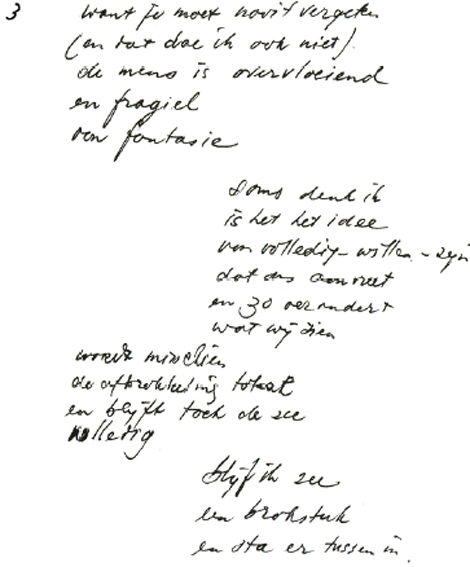 3 want je moet nooit vergeten
(en dat doe ik ook niet)
de mens is overvloeiend
en fragiel
van fantasie
soms denk ik
is het het idee
van volledig-willen-zijn
dat ons aanvreet
en zo verandert
wat wij zien
wordt misschien
de afbrokkeling totaal
en blijft toch de zee
volledig
blijf ik zee
een brokstuk
en sta er tussen in.